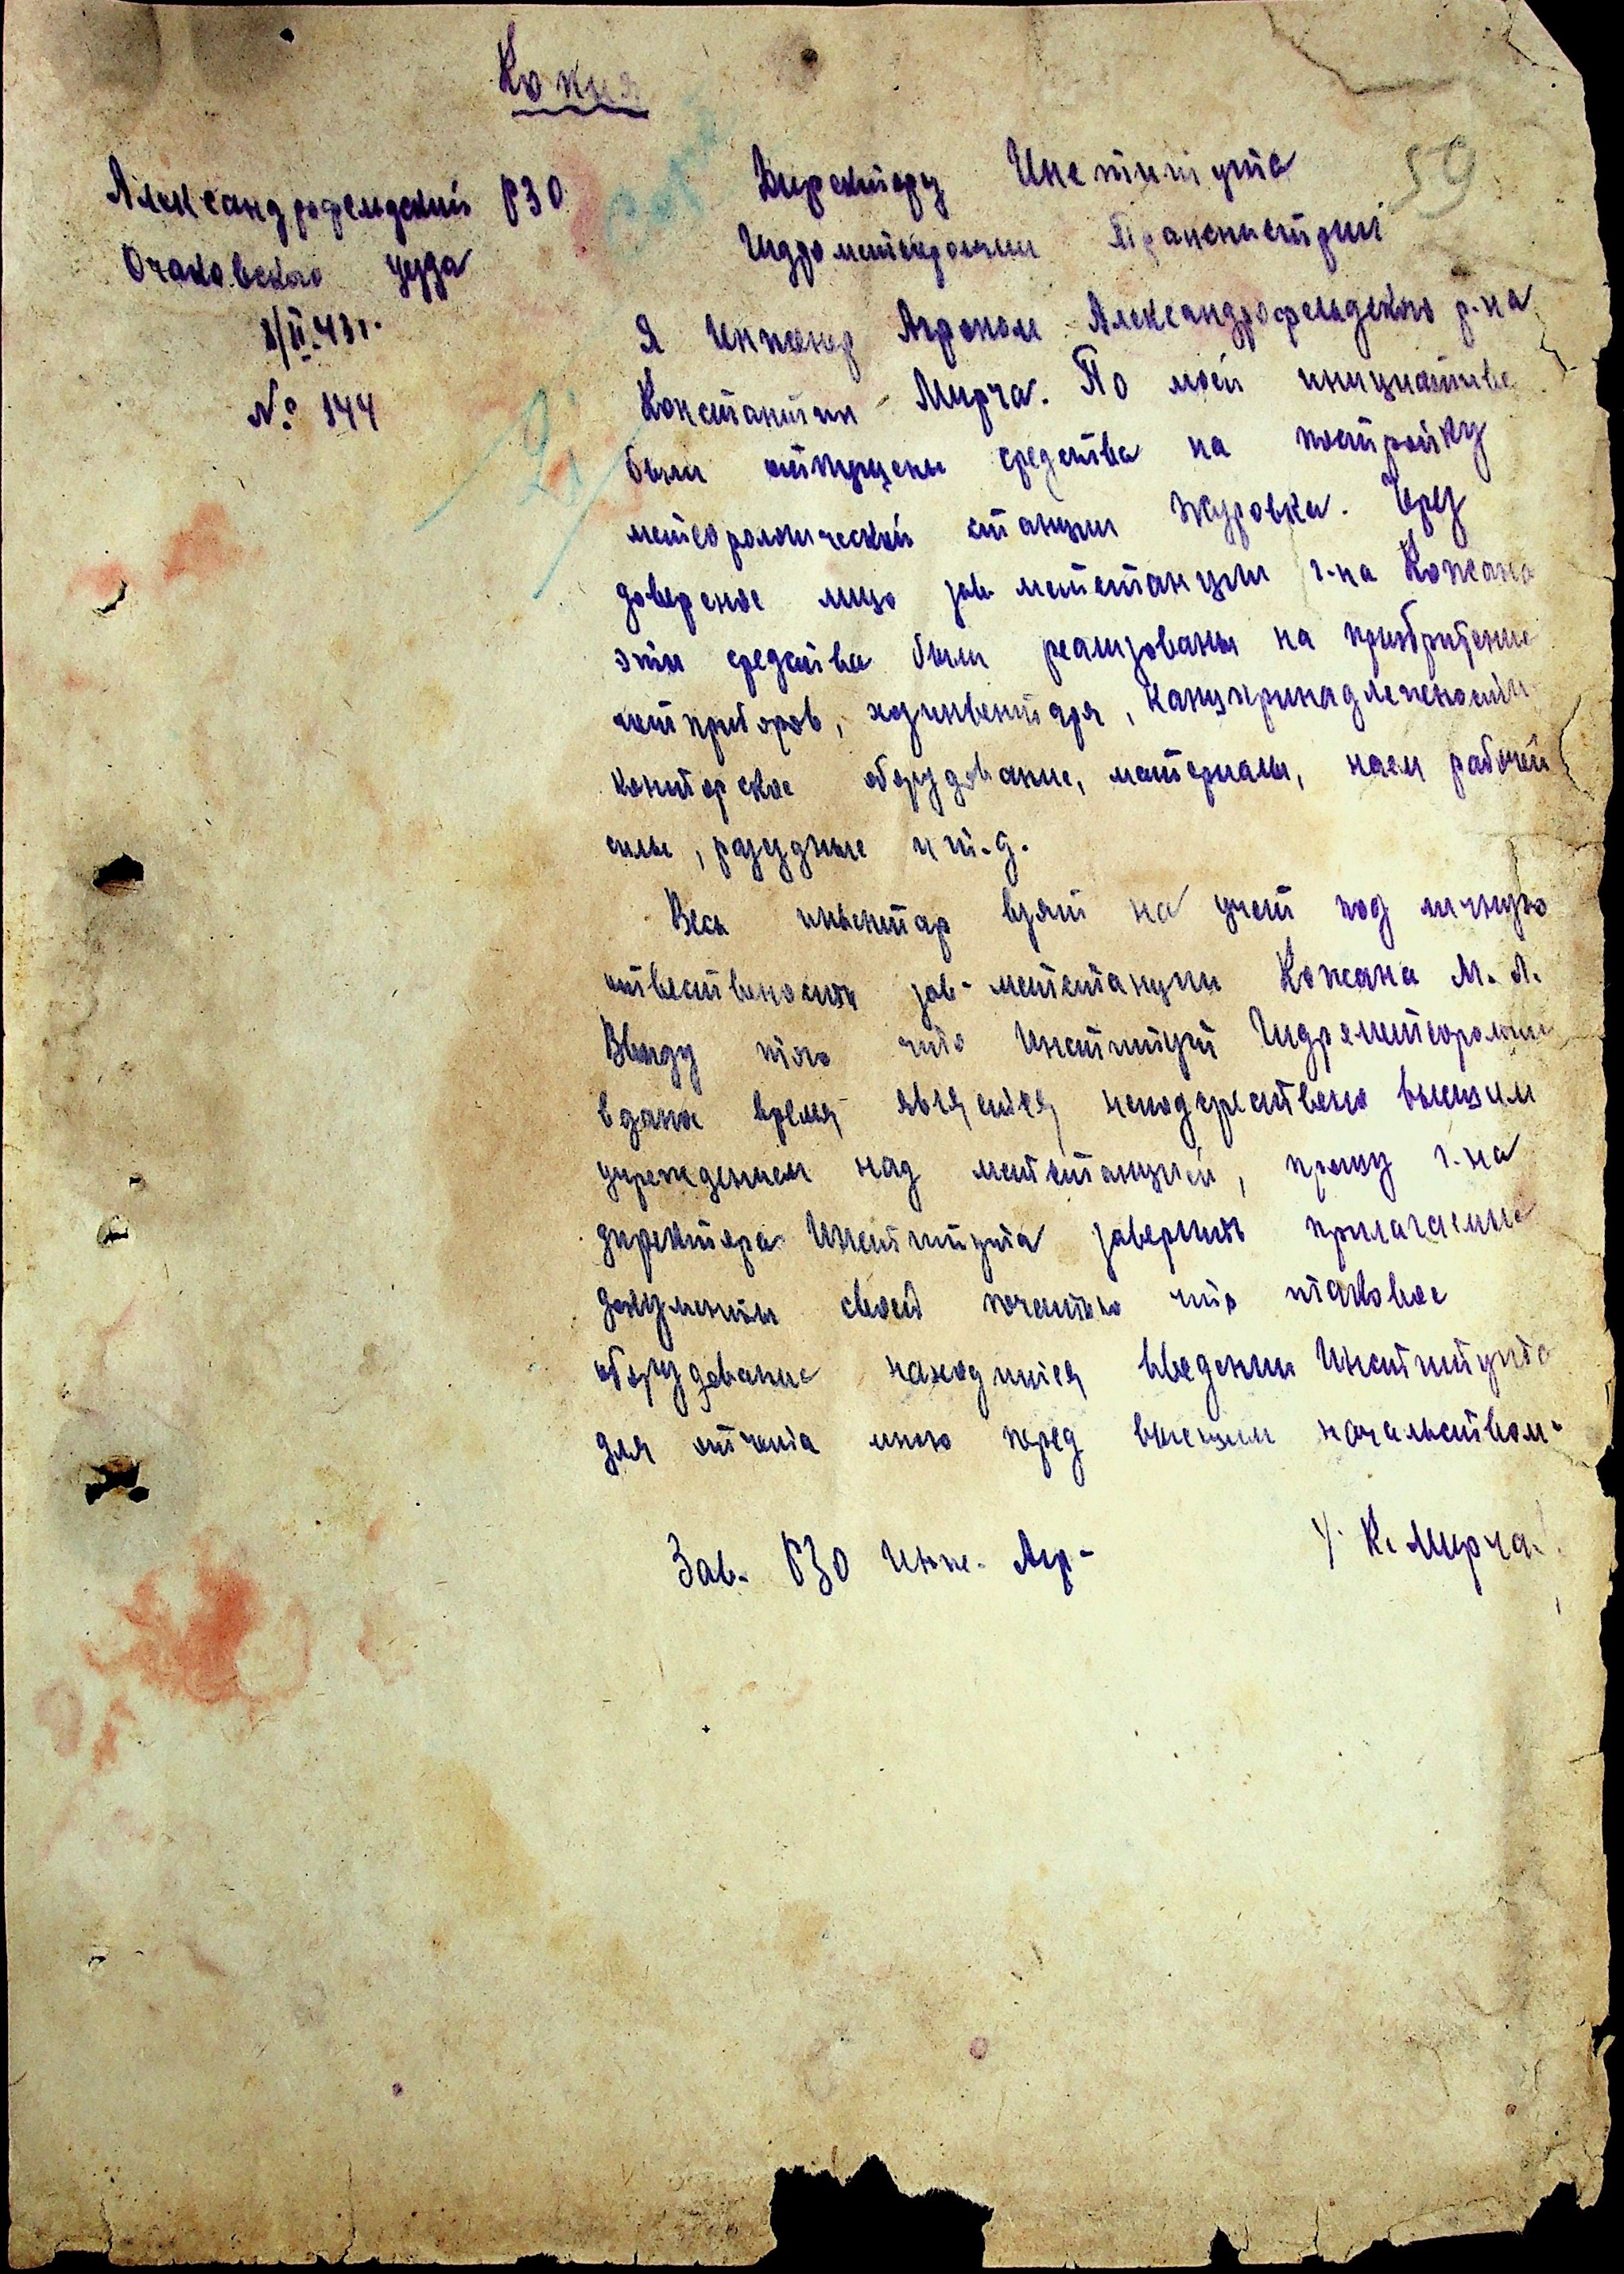 Копия
59
Александрофельдский РЗО
Очаковского уезда
8/II.43г.
№ 144
Директору Института
Гидрометеорологии Транснистрии
Я Инженер Агроном Александрофельдского р-на
Константин Мирча. По моей инициативе
были отпущены средства на постройку
метеорологической станции Журовка. Через
довереное лицо зав. метстанции г-на Кожана
эти средства были реализованы на приобритение
метприборов, хозинвентаря, канцпринадлежености
конторское оборудование, материалы, наем рабочей
силы, разездные и т.д.
Весь инвентар взят на учет под личную
ответственость зав- метстанции Кожана М. Л.
Ввиду того что Институт Гидрометеорологии
в даное время является непосредствено высшим
учреждением над метстанцией, прошу г-на
директора Института заверить прилагаемые
документы своей печатью что таковое
оборудование находится введении Института
для отчета мною перед высшим начальством.
Зав. РЗО Инж. Агр- К. Мирча.